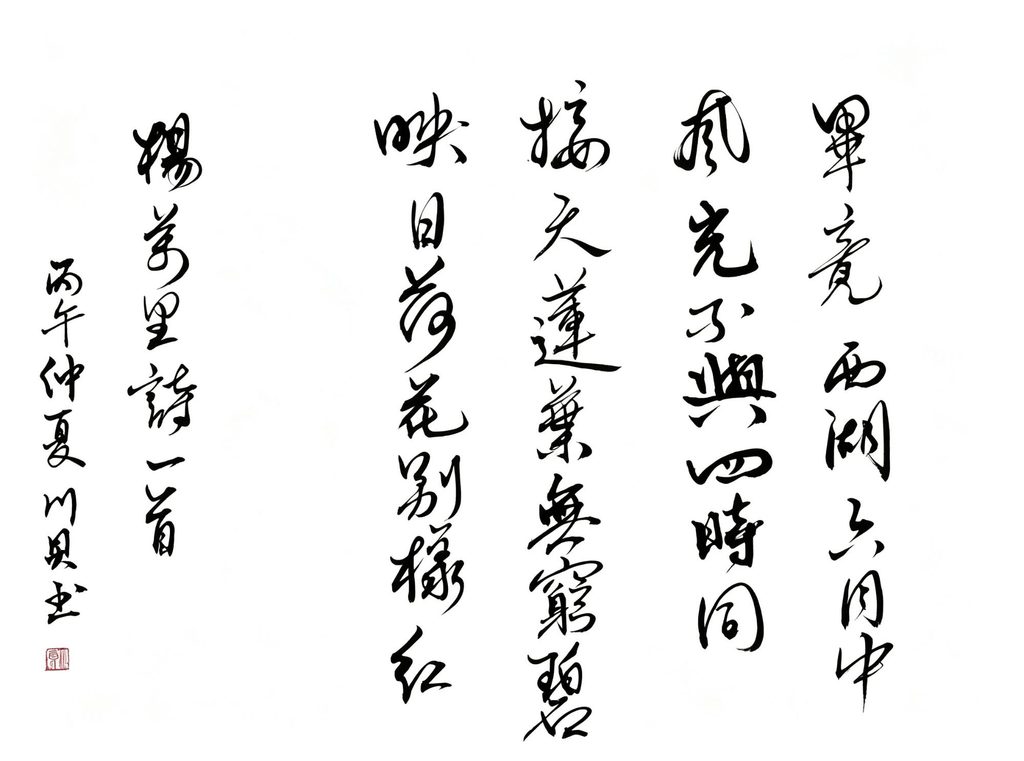 畢竟西湖六月中
風光不與四時同
接天蓮葉無窮碧
映日荷花别樣紅
楊萬里詩一首
丙午仲夏川貝书